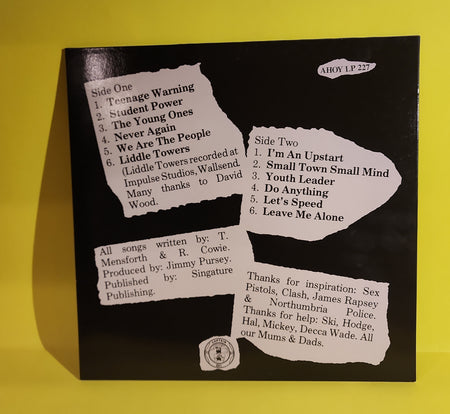 AHOY LP 227
Side One
1. Teenage Warning
2. Student Power
3. The Young Ones
4. Never Again
5. We Are The People
6. Liddle Towers
(Liddle Towers recorded at
Impulse Studios, Wallsend.
Many thanks to David
Wood.
Side Two
1. I'm An Upstart
2. Small Town Small Mind
3. Youth Leader
4. Do Anything
5. Let's Speed
6. Leave Me Alone
All songs written by: T.
Mensforth & R. Cowie.
Produced by: Jimmy Pursey.
Published by: Singature
Publishing.
Thanks for inspiration: Sex
Pistols, Clash, James Rapsey
& Northumbria Police.
Thanks for help: Ski, Hodge,
Hal, Mickey, Decca Wade. All
our Mums & Dads.